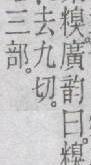 糗廣韵曰糗
去九切。
三部。